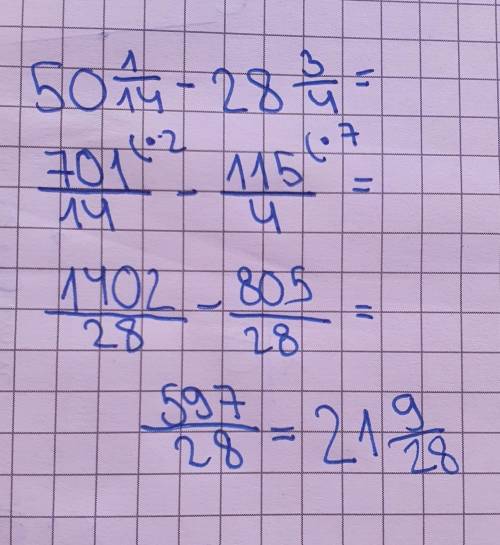 50 1/14 - 28 3/4 =
701/14 (·2 - 115/4 (·7 =
1402/28 - 805/28 =
597/28 = 21 9/28